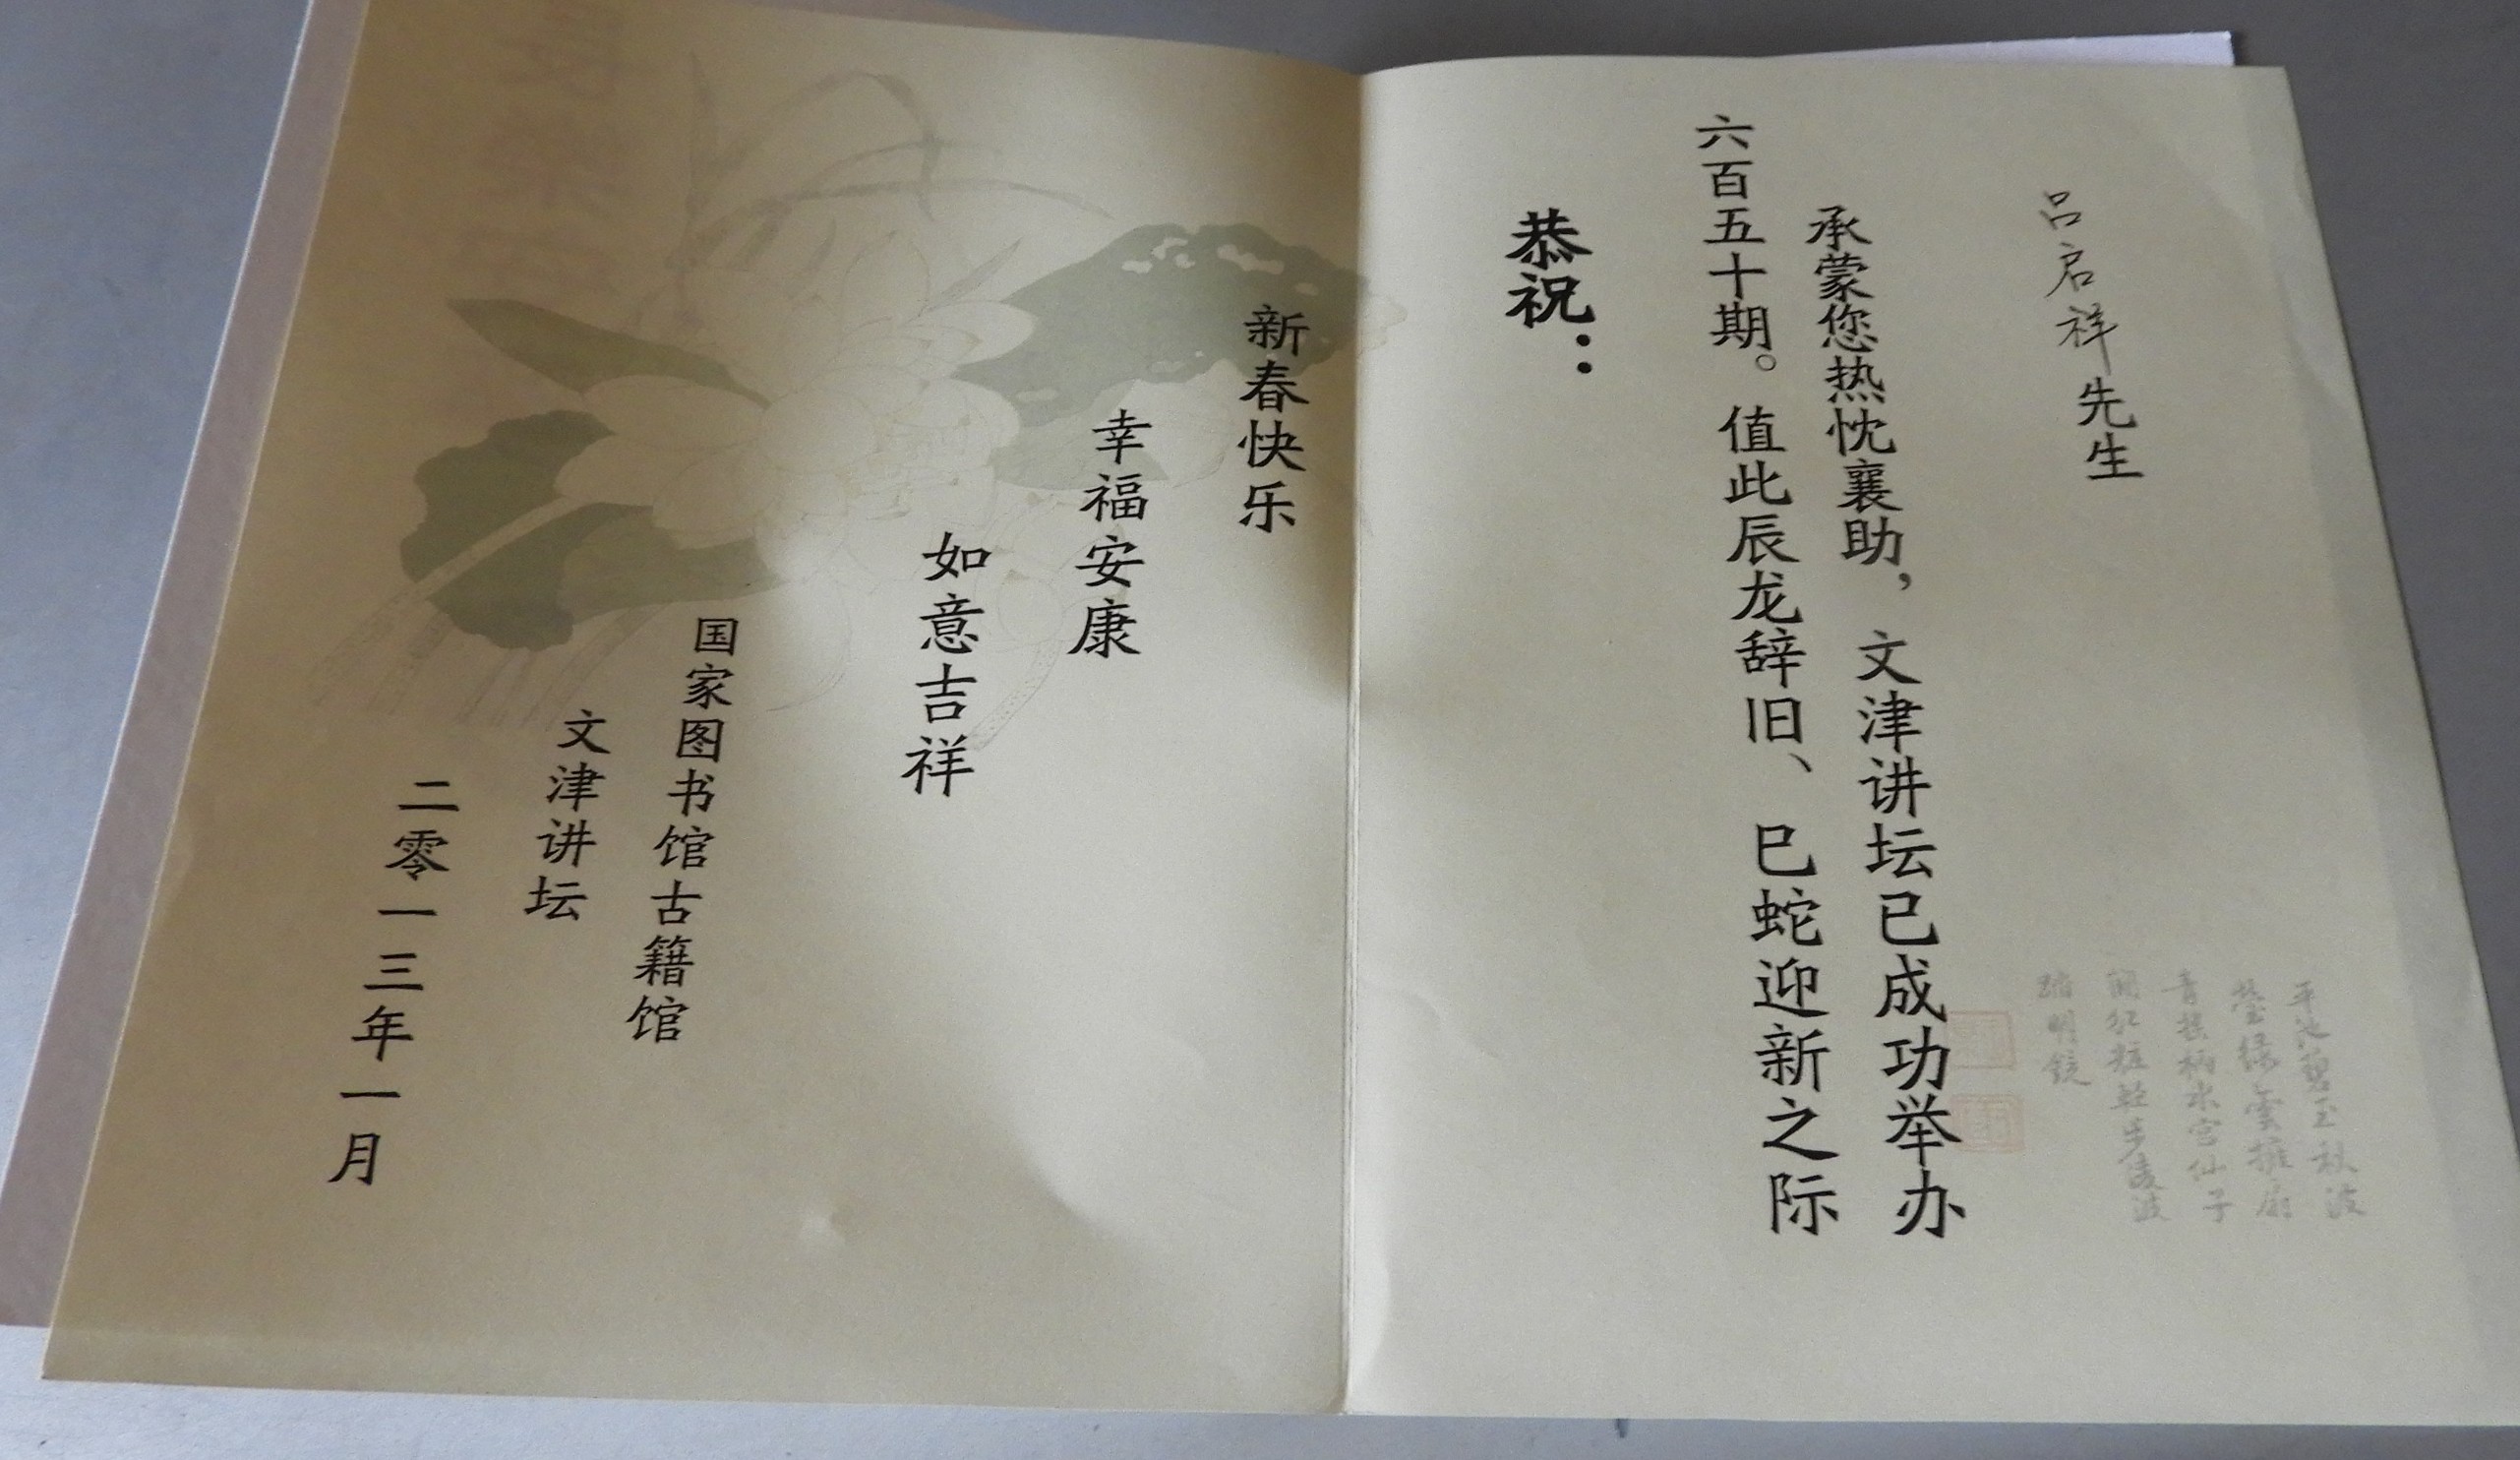 吕启祥先生
承蒙您热忱襄助，文津讲坛已成功举办
六百五十期。值此辰龙辞旧、巳蛇迎新之际
恭祝：
新春快乐
幸福安康
如意吉祥
国家图书馆古籍馆
文津讲坛
二零一三年一月
秋波
雲擁扇
青搖柄水宮仙子
明鏡